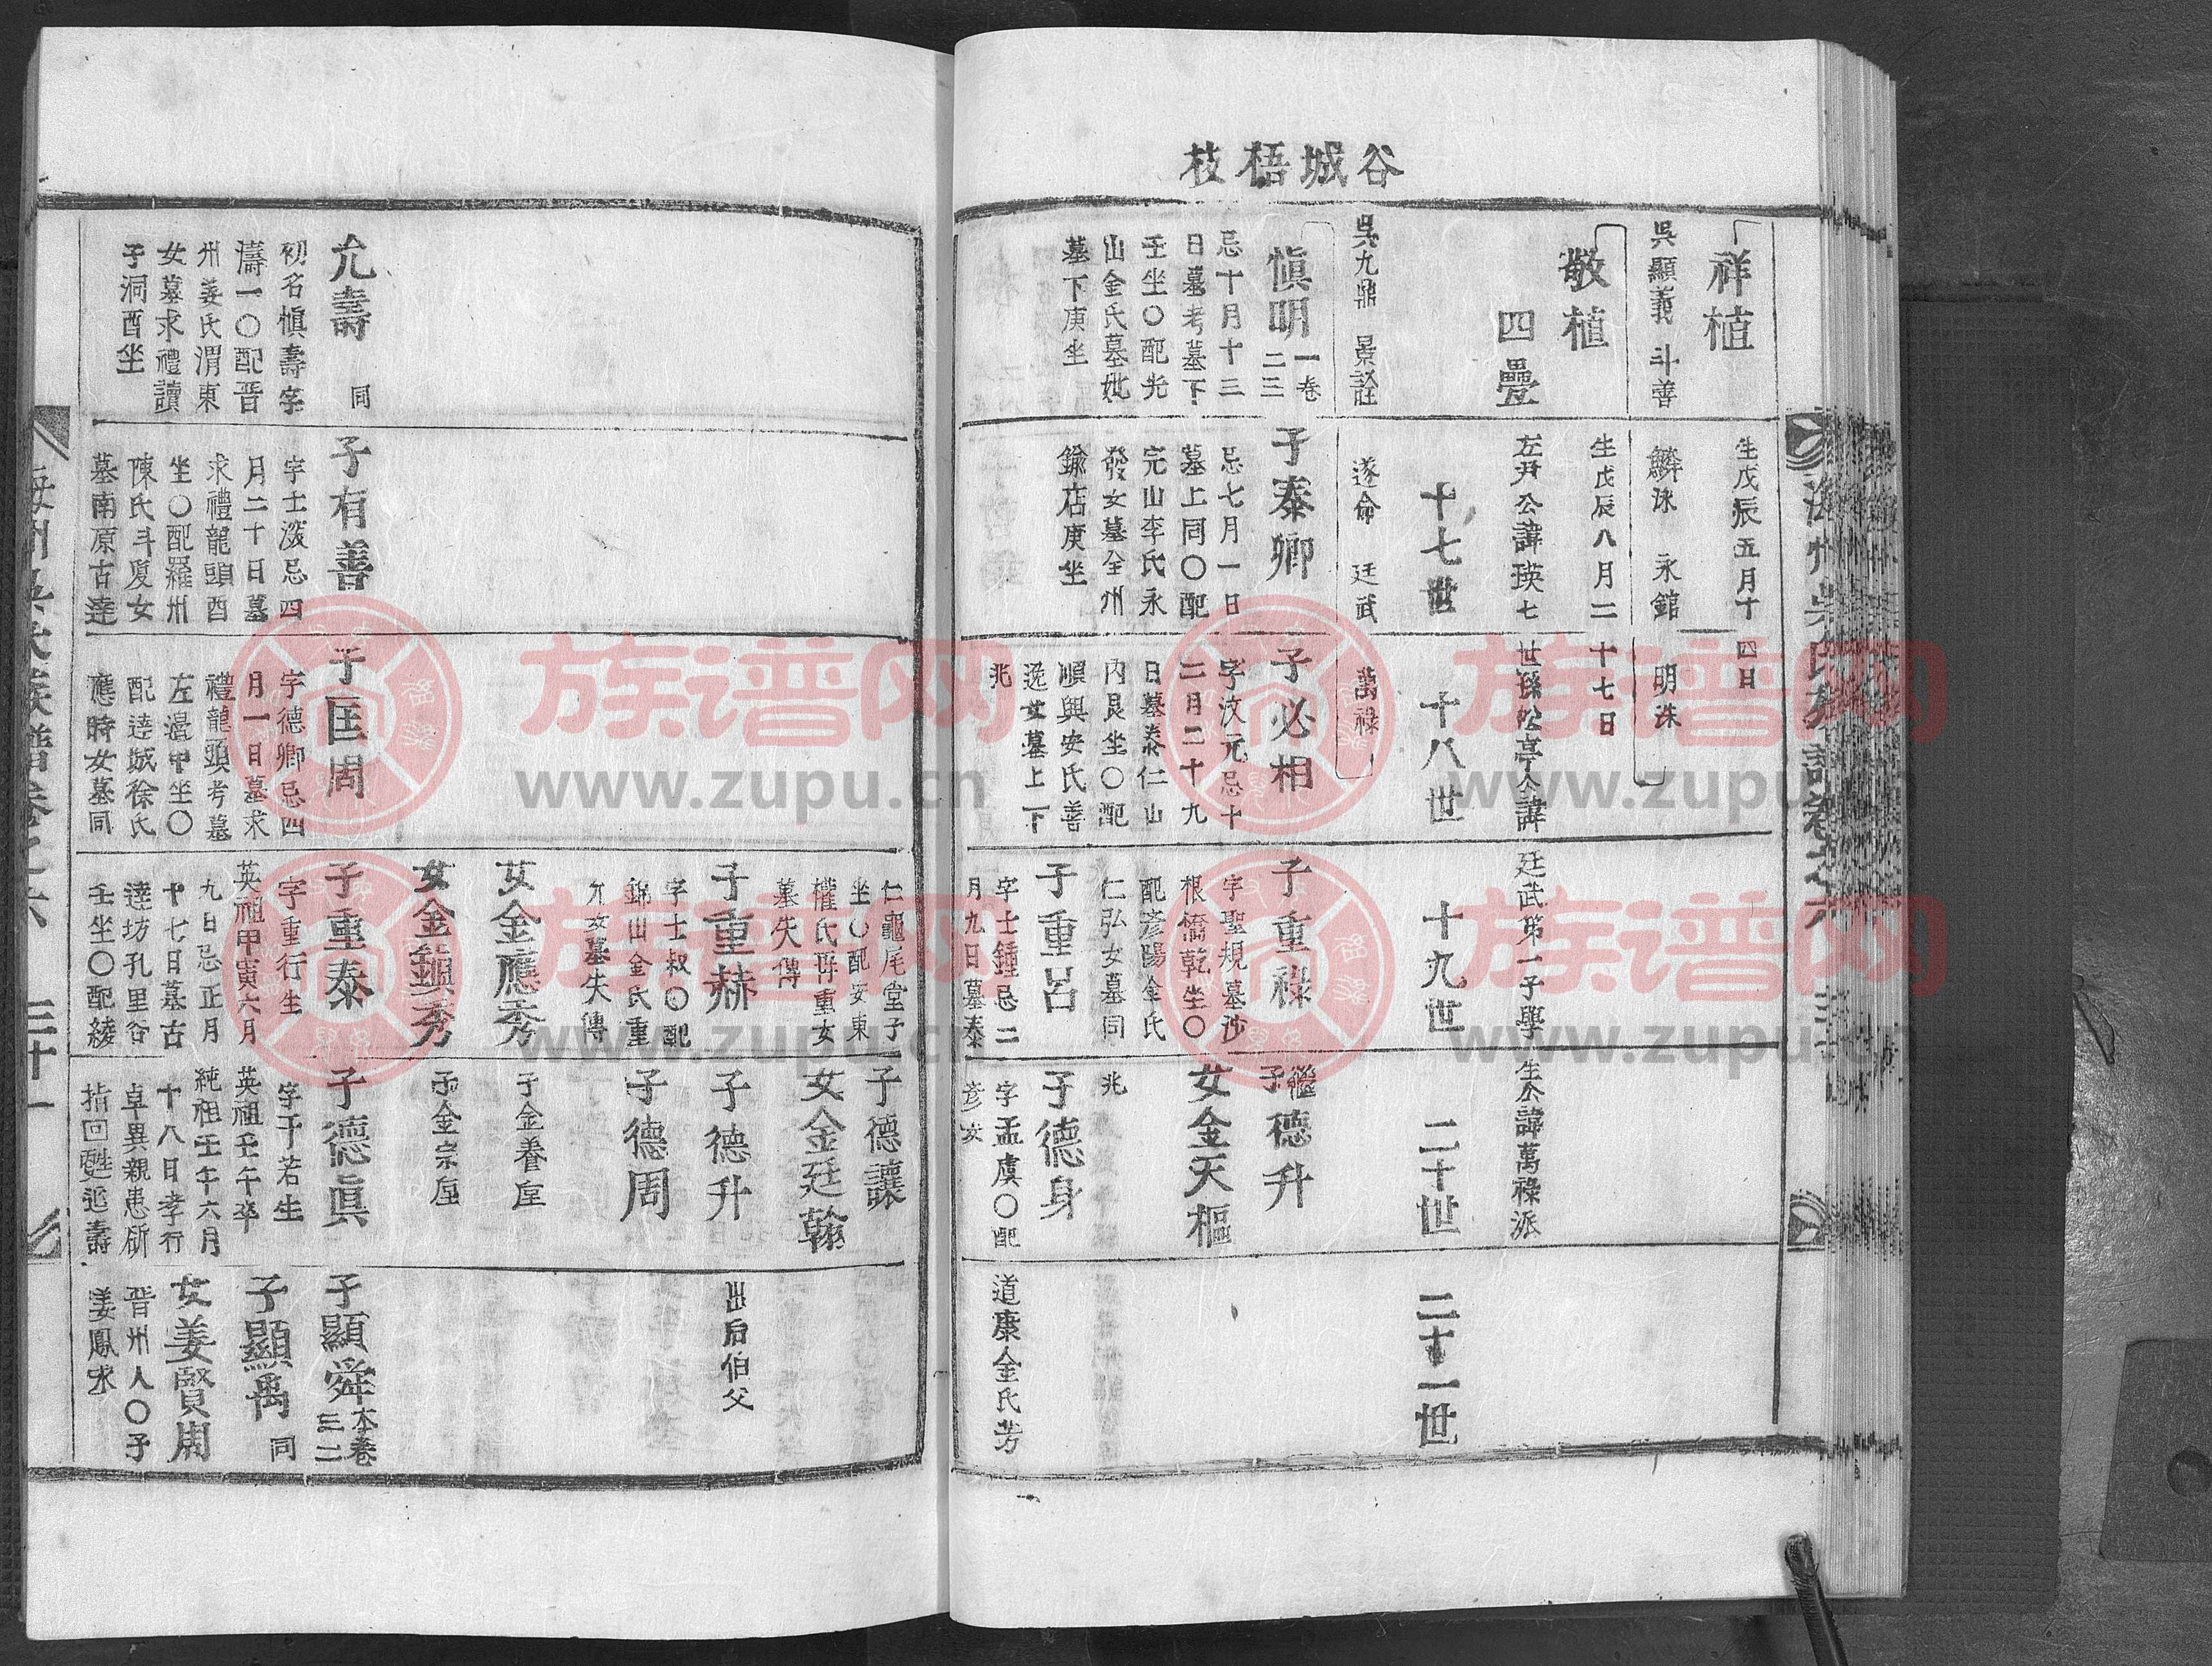 谷城梧枝
祥植
吳顯義 斗善
敬植
四疊
吳九鼎 景詮
愼明 一卷二三
忌十月十三
日墓考墓下
壬坐〇配光
山金氏墓妣
墓下庚坐
生戊辰五月十
鱗泳 永錧
生戊辰八月二
左尹公諱瑛七
十七世
遂命 廷武
子泰卿
忌七月一日
墓上同〇配
完山李氏永
發女墓全州
鍮店庚坐
四日
明洙
十七日
世孫松亭公諱
十八世
萬祿
子必相
字汶元忌十
二月二十九
日墓泰仁山
內艮坐〇配
順興安氏善
逸女墓上下
兆
廷武第一子學
十九世
子重祿
字聖規墓沙
根橋乾坐〇
配彥陽金氏
仁弘女墓同
子重呂
字士鍾忌二
月九日墓泰
生公諱萬祿派
二十世
繼子德升
女金天樞
兆
子德身
字孟虞〇配
二十一世
道康金氏芳
允壽 同
初名愼壽字
濤一〇配晋
州姜氏渭東
女墓求禮讀
子洞酉坐
子有善
字士淡忌四
月二十日墓
求禮龍頭酉
坐〇配羅州
陳氏斗度女
墓南原古達
子匡周
字德卿忌四
月一日墓求
禮龍頭考墓
左邊甲坐〇
配達城徐氏
應時女墓同
仁龜尾堂子
坐〇配安東
權氏再重女
墓失傳
子重赫
字士叔〇配
錦山金氏重
九女墓失傳
女金應秀
女金鎰秀
子重泰
字重行生
英祖甲寅六月
九日忌正月
十七日墓古
達坊孔里谷
壬坐〇配綾
子德讓
女金廷翰
子德升
子德周
子金養垕
子金宗垕
子德眞
字子若生
英祖壬午卒
純祖壬午六月
十八日孝行
卓異親患斫
指回甦延壽
出后伯父
子顯舜 本卷三二
子顯禹 同
女姜賢周
晋州人〇子
姜鳳求
三十一
族谱网
www.zupu.cn
族谱网
www.zupu.cn
族谱网
www.zupu.cn
族谱网
www.zupu.cn